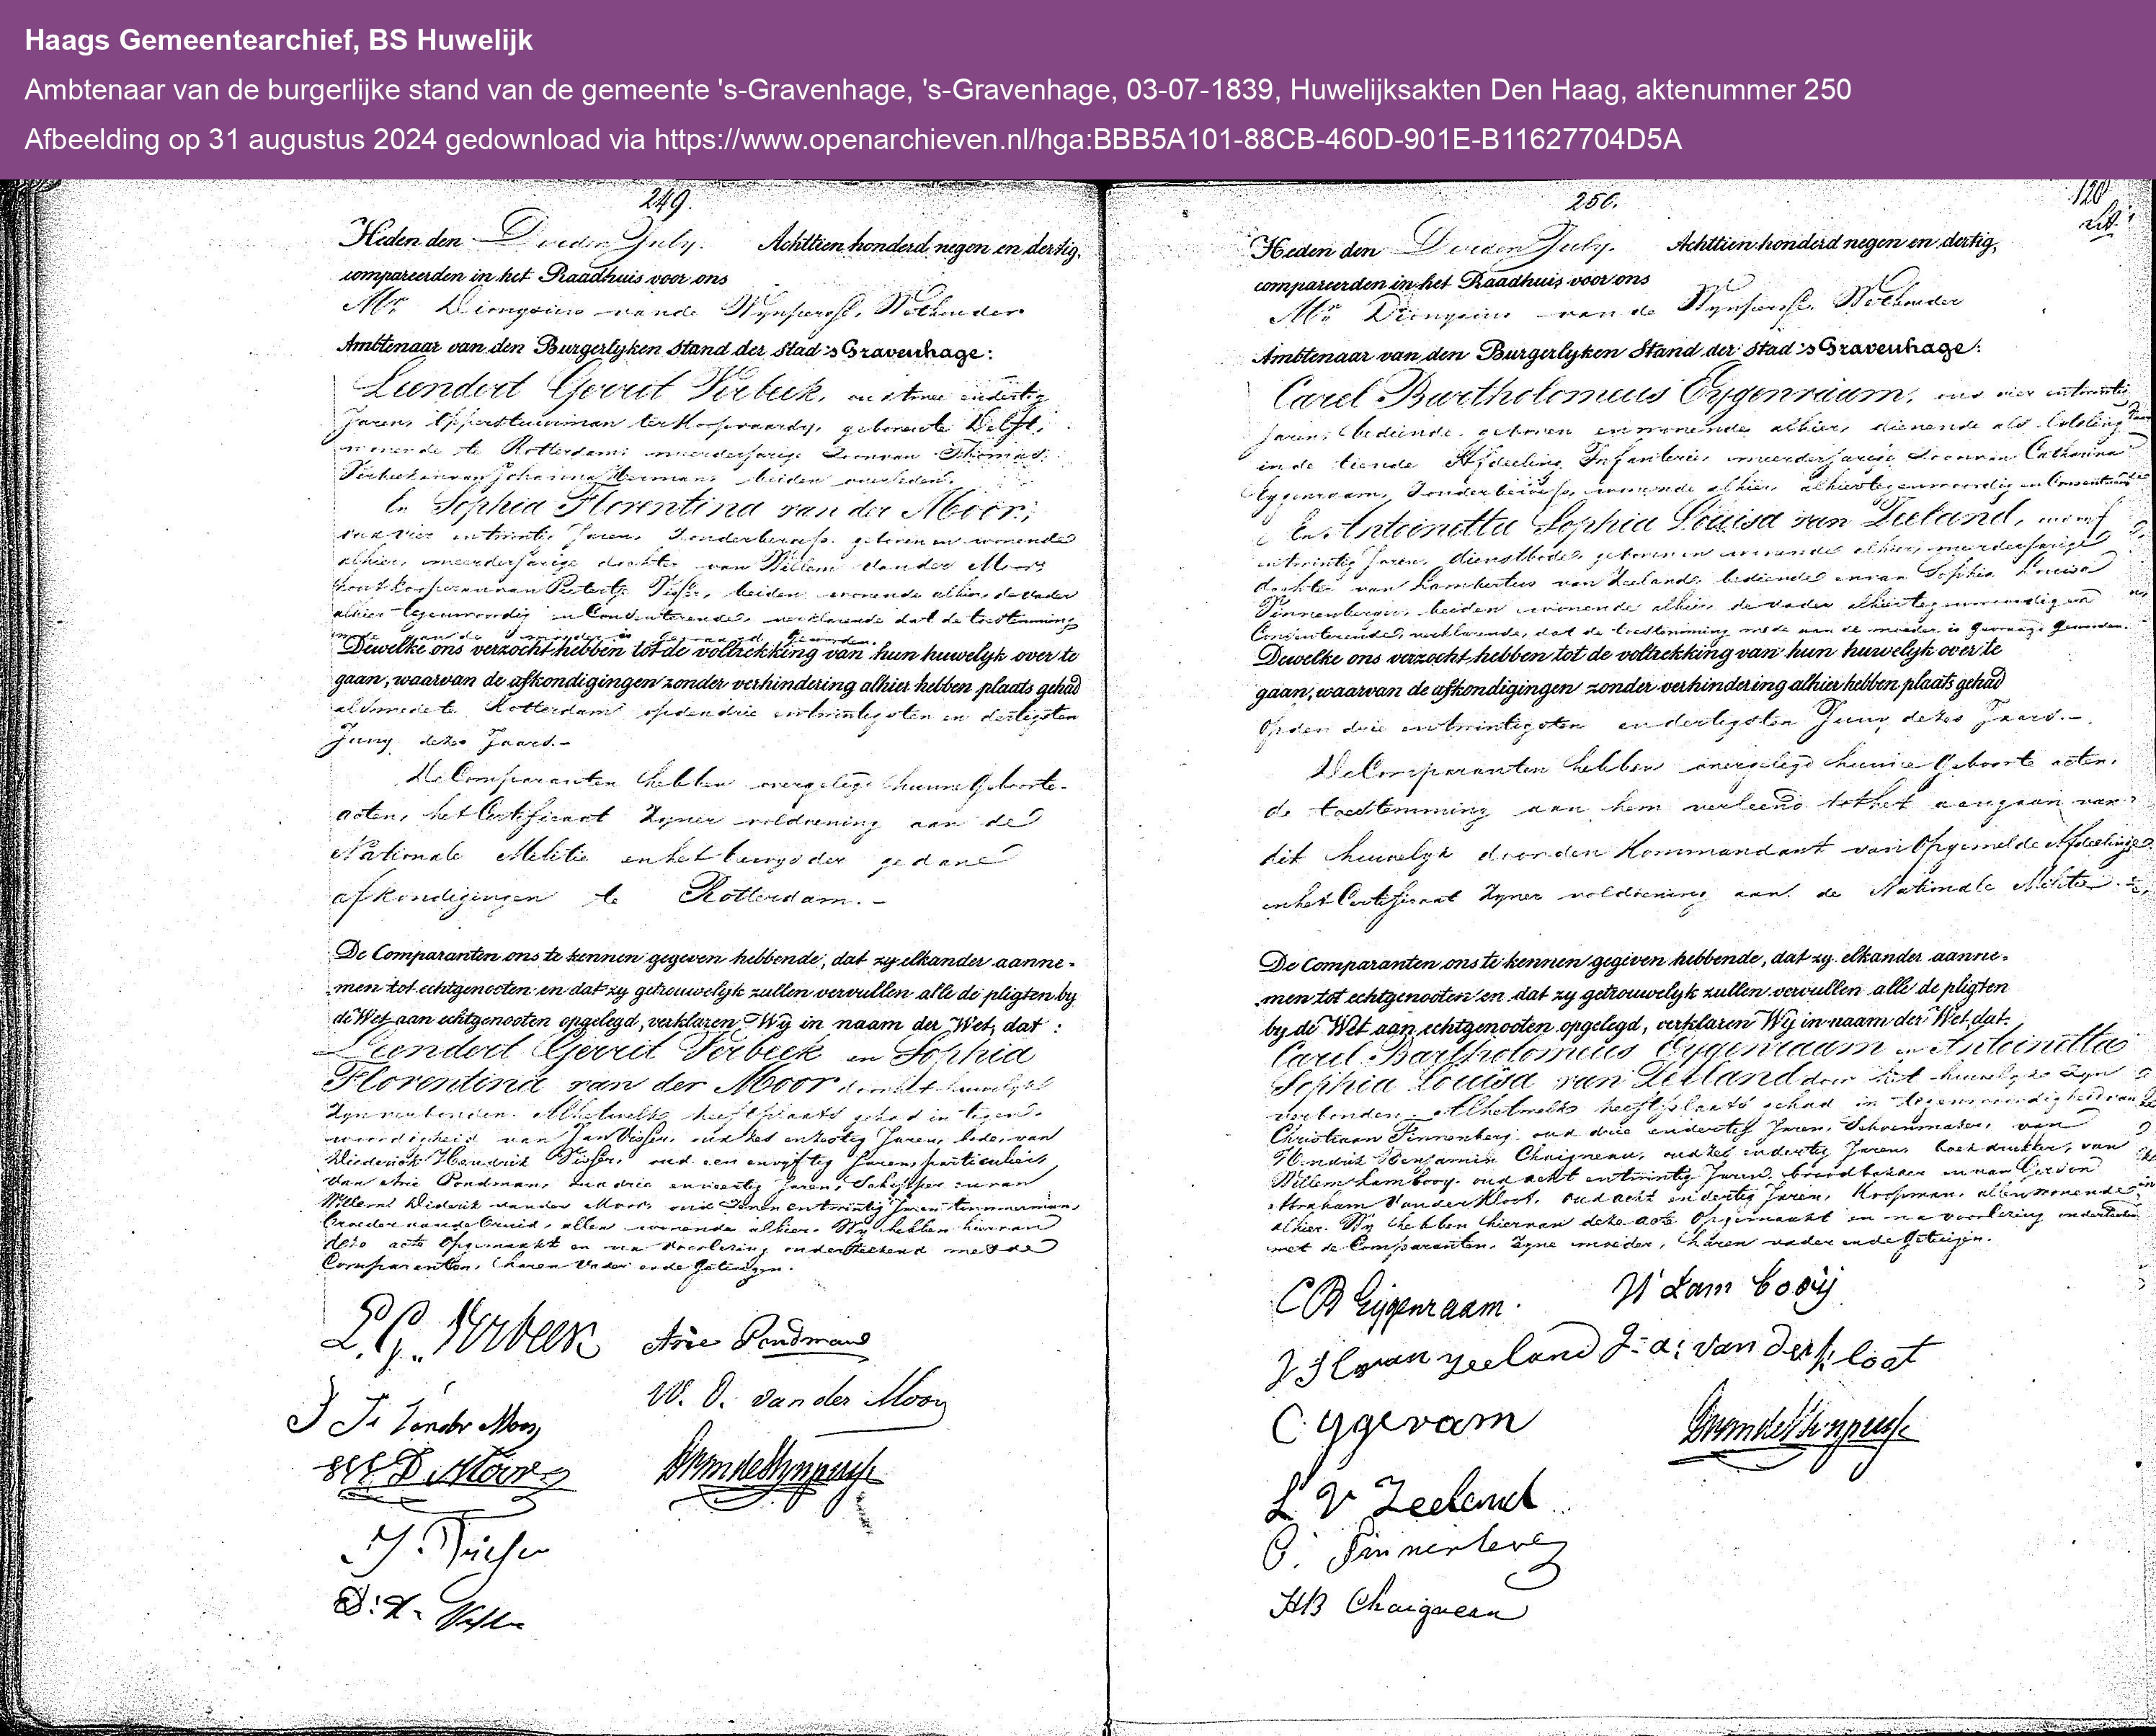 Haags Gemeentearchief, BS Huwelijk
Ambtenaar van de burgerlijke stand van de gemeente 's-Gravenhage, 's-Gravenhage, 03-07-1839, Huwelijksakten Den Haag, aktenummer 250
Afbeelding op 31 augustus 2024 gedownload via https://www.openarchieven.nl/hga:BBB5A101-88CB-460D-901E-B11627704D5A
249.
Heden den Derden July. Achttien honderd negen en dertig,
compareerden in het Raadhuis voor ons
Mr. van de Wethouder
Ambtenaar van den Burgerlyken Stand der Stad 's Gravenhage:
Leendert Gerrit Verbeek, oud twee en dertig
Jaren, Opperstuurman ter Koopvaardy, geboren te Delft,
wonende te Rotterdam, meerderjarige Zoon van Thomas
Verbeek en van Johanna Herman, beiden overleden.
En Sophia Florentina van der Moor,
oud vier en twintig Jaren, Zonder beroep, geboren en wonende
alhier, meerderjarige dochter van Willem van der Moor,
van Pietertje Visser, beiden wonende alhier, de vader
alhier tegenwoordig en Consenterende, verklarende dat de toestemming
mede aan de moeder is gevraagd geworden.
Dewelke ons verzocht hebben tot de voltrekking van hun huwelyk over te
gaan, waarvan de afkondigingen zonder verhindering alhier hebben plaats gehad
alsmede te Rotterdam op den drie en twintigsten en dertigsten
Juny dezes Jaars.-
De Comparanten hebben overgelegd hunne Geboorte-
acten, het Certificaat Zyner voldoening aan de
Nationale Militie en het bewys der gedane
afkondigingen te Rotterdam.-
De Comparanten ons te kennen gegeven hebbende, dat zy elkander aanne-
men tot echtgenooten en dat zy getrouwelyk zullen vervullen alle de pligten by
de Wet aan echtgenooten opgelegd, verklaren Wy in naam der Wet, dat:
Leendert Gerrit Verbeek en Sophia
Florentina van der Moor door het huwelyk
Zyn verbonden. Alhetwelk heeft plaats gehad in tegen-
woordigheid van Jan Visser, oud zes en zestig Jaren, bode, van
Diederick Hendrik Visser, oud een en vyftig Jaren, particulier,
van Arie Pondman, oud drie en veertig Jaren, Schipper en van
Willem Diderik van der Moor, oud Zeven en twintig Jaren timmerman,
broeder van de bruid, allen wonende alhier. Wy hebben hiervan
deze acte Opgemaakt en na voorlezing onderteekend met de
Comparanten, haren Vader en de Getuigen.
L. G. Verbeek Arie Pondman
van der Moor W. D. van der Moor
D. Moor
J. Visser
D: H. Visser
250.
120
Heden den Derden July. Achttien honderd negen en dertig,
compareerden in het Raadhuis voor ons
Mr. van de Wethouder
Ambtenaar van den Burgerlyken Stand der Stad 's Gravenhage:
Carel Bartholomeus Eygenraam, oud vier en twintig
Jaren, bediende, geboren en wonende alhier, dienende als loteling
in de tiende Afdeeling Infanterie, meerderjarige Zoon van Catharina
Eygenraam, Zonder beroep, wonende alhier, alhier tegenwoordig en Consenterende
En Antoinetta Sophia Louisa van Zeeland,
en twintig Jaren, dienstbode, geboren en wonende alhier, meerderjarige
dochter van Lambertus van Zeeland, bediende en van Sophia Louisa
Pinnenberger, beiden wonende alhier, de vader alhier tegenwoordig en
Consenterende, verklarende, dat de toestemming mede aan de moeder is gevraagd geworden.
Dewelke ons verzocht hebben tot de voltrekking van hun huwelyk over te
gaan, waarvan de afkondigingen zonder verhindering alhier hebben plaats gehad
Op den drie en twintigsten en dertigsten Juny dezes Jaars.-
De Comparanten hebben overgelegd hunne Geboorte acten,
de toestemming aan hem verleend tot het aangaan van
dit huwelyk door den Kommandant van Opgemelde Afdeeling
en het Certificaat Zyner voldoening aan de Nationale Militie.
De Comparanten ons te kennen gegeven hebbende, dat zy elkander aanne-
men tot echtgenooten en dat zy getrouwelyk zullen vervullen alle de pligten
by de Wet aan echtgenooten opgelegd, verklaren Wy in naam der Wet, dat:
Carel Bartholomeus Eygenraam en Antoinetta
Sophia Louisa van Zeeland door het huwelyk Zyn
verbonden. Alhetwelk heeft plaats gehad in tegenwoordigheid van
Christiaan Pinnenberg, oud drie en dertig Jaren, Schoenmaker, van
Hendrik Benjamin Chaigneau, oud zes en dertig Jaren, boekdrukker, van
Willem Lambooy, oud acht en twintig Jaren, broodbakker en van
Abraham van der Kloot, oud acht en dertig Jaren, Koopman, allen wonende
alhier. Wy hebben hiervan deze acte Opgemaakt en na voorlezing onderteekend
met de Comparanten, Zyne moeder, haren vader en de Getuigen.
C B Eijgenraam. W Lambooij
van Zeeland J: a: van der kloot
C ygeram
L V Zeeland
C. Pinnenberg
HB Chaigneau